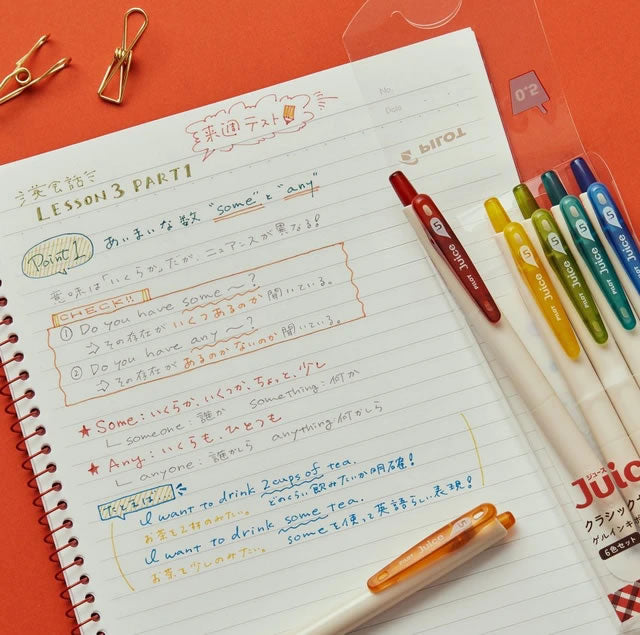 来週テスト
No.
Date
英会話
LESSON 3 PART1
Point 1
あいまいな数 "some"と"any"
意味は「いくらか」だが、ニュアンスが異なる!
CHECK!!
① Do you have some ~?
⇒その存在がいくつあるのか聞いている。
② Do you have any ~?
⇒その存在があるのかないのか聞いている。
★Some:いくらか、いくつか、ちょっと、少し
someone:誰か something:何か
★Any:いくらも、ひとつも
anyone:誰かしら anything:何かしら
たとえば
I want to drink 2cups of tea.
お茶を2杯のみたい。 どのくらい飲みたいか明確!
I want to drink some tea.
お茶を少しのみたい。 someを使って英語らしい表現!
0.5
PILOT
PILOT Juice 5
PILOT Juice 5
PILOT Juice 5
PILOT Juice 5
5
PILOT Juice 5
ジュース
Juic
クラシック
ゲルインキ
6色セット